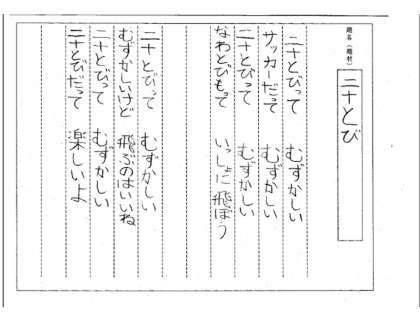 題名(題材)
二十とび
二十とびって むずかしい
サッカーだって むずかしい
二十とびって むずかしい
なわとびもって いっしょに飛ぼう
二十とびって むずかしい
むずかしいけど 飛ぶのはいいね
二十とびって むずかしい
二十とびだって 楽しいよ